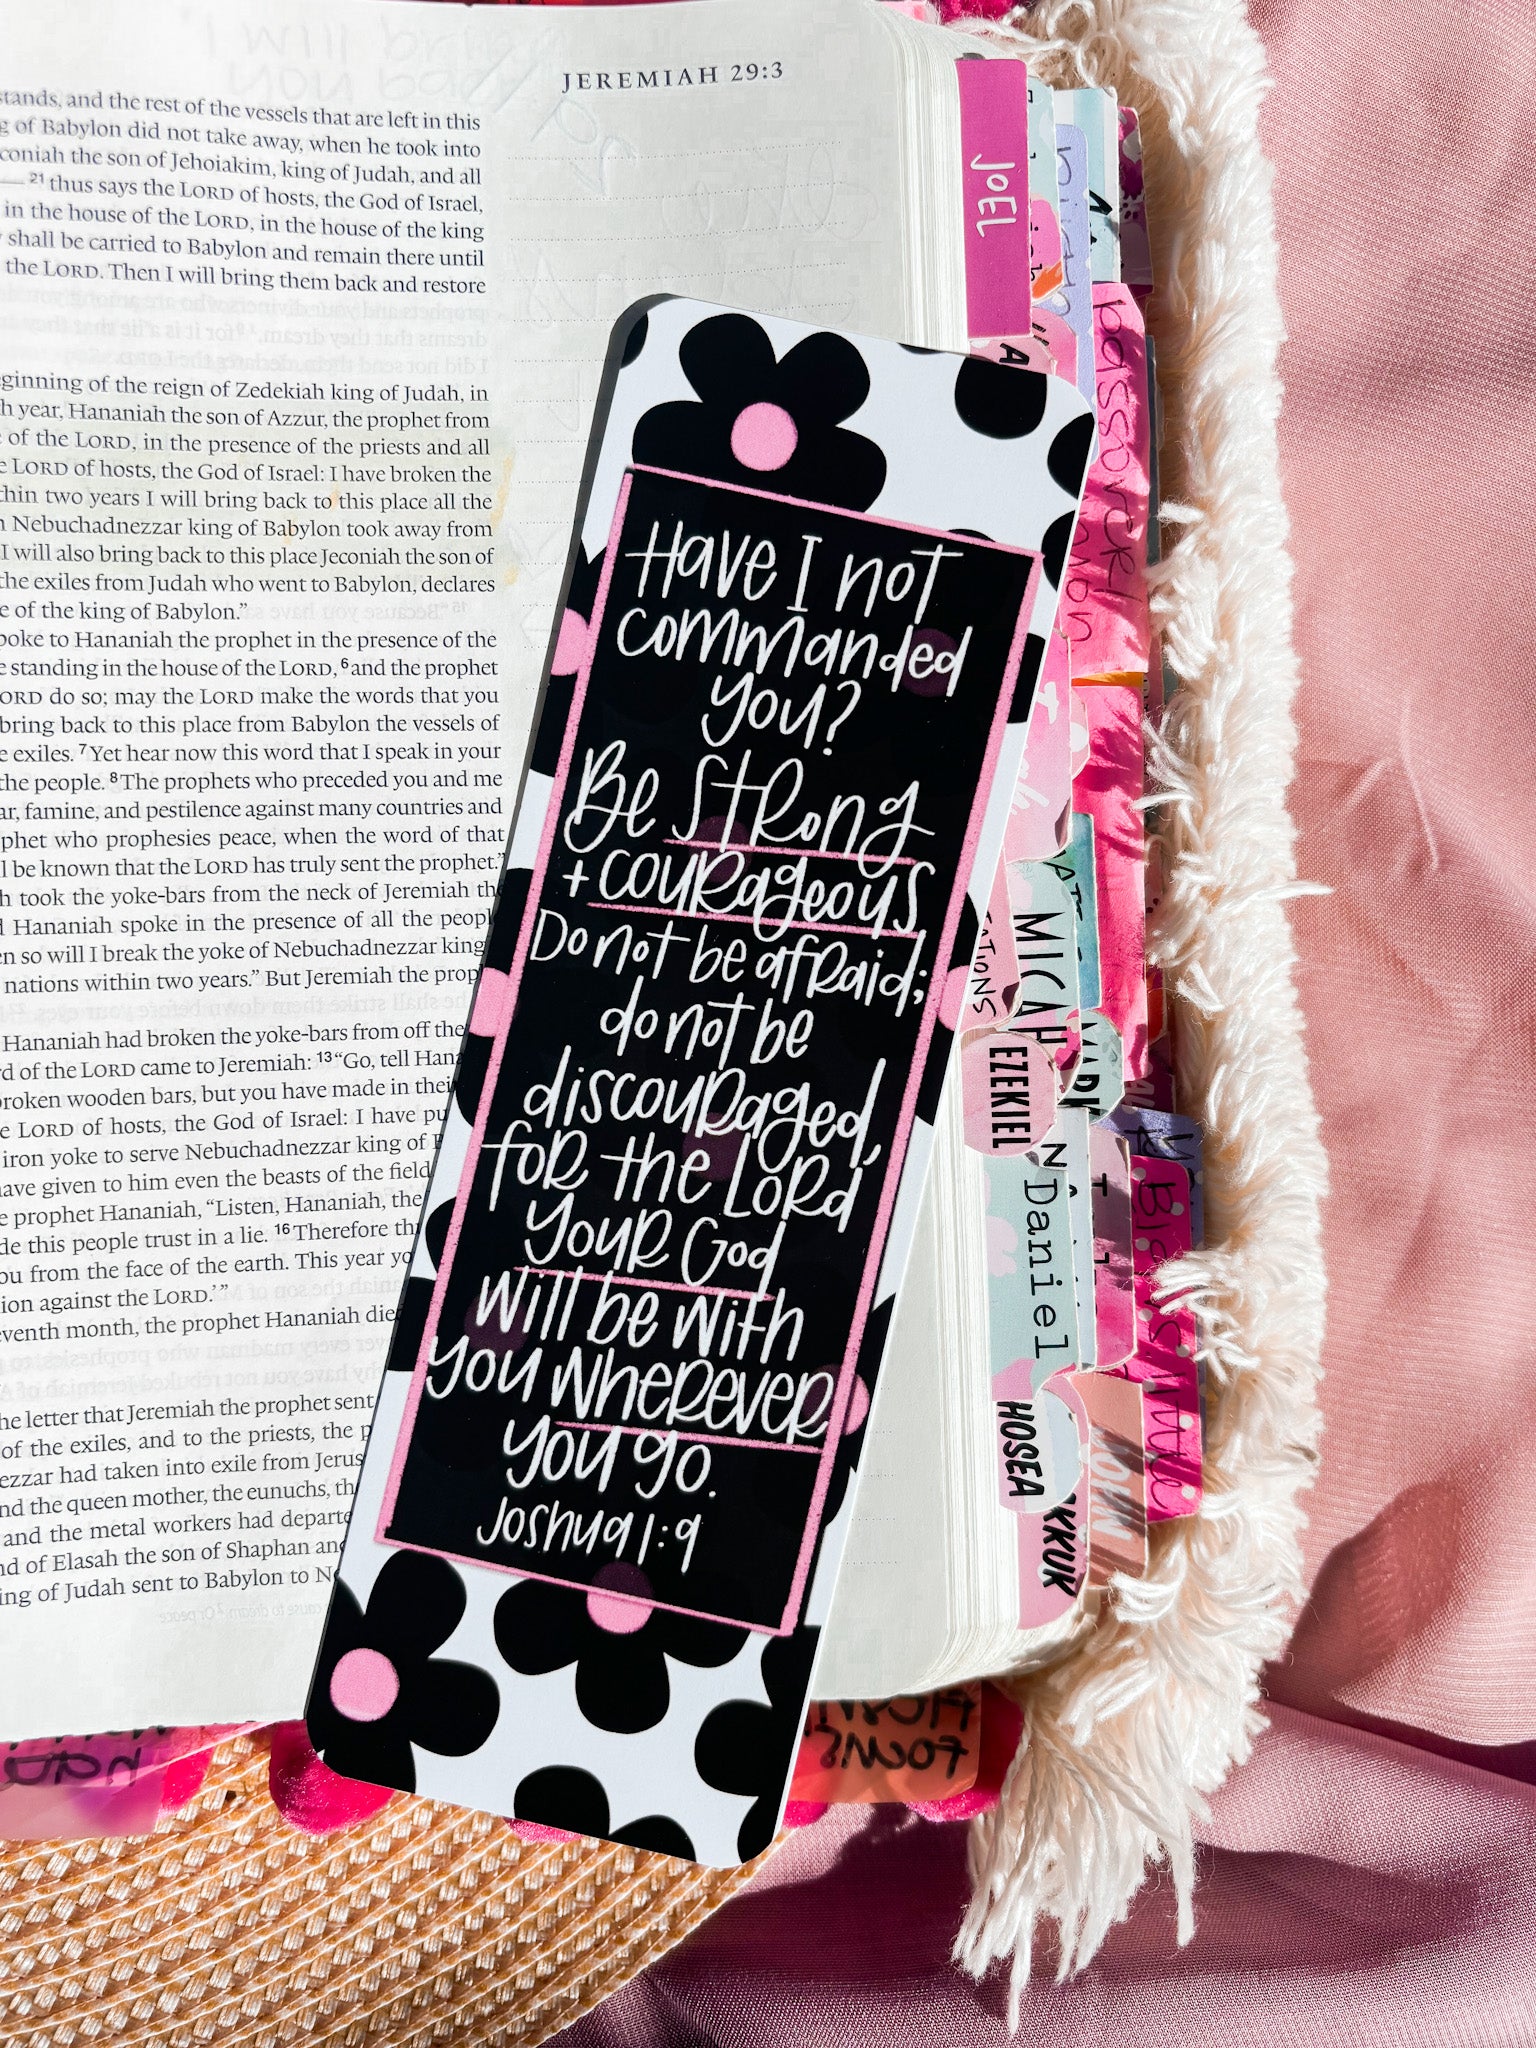 JEREMIAH 29:3
stands, and the rest of the vessels that are left in this
of Babylon did not take away, when he took into
coniah the son of Jehoiakim, king of Judah, and all
—21 thus says the LORD of hosts, the God of Israel,
in the house of the LORD, in the house of the king
shall be carried to Babylon and remain there until
the LORD. Then I will bring them back and restore
ginning of the reign of Zedekiah king of Judah, in
h year, Hananiah the son of Azzur, the prophet from
of the LORD, in the presence of the priests and all
e LORD of hosts, the God of Israel: I have broken the
thin two years I will bring back to this place all the
Nebuchadnezzar king of Babylon took away from
I will also bring back to this place Jeconiah the son of
the exiles from Judah who went to Babylon, declares
e of the king of Babylon.”
poke to Hananiah the prophet in the presence of the
e standing in the house of the LORD, 6 and the prophet
ORD do so; may the LORD make the words that you
bring back to this place from Babylon the vessels of
e exiles. 7 Yet hear now this word that I speak in your
the people. 8 The prophets who preceded you and me
ar, famine, and pestilence against many countries and
phet who prophesies peace, when the word of that
ll be known that the LORD has truly sent the prophet.”
h took the yoke-bars from the neck of Jeremiah the
d Hananiah spoke in the presence of all the peopl
en so will I break the yoke of Nebuchadnezzar king
nations within two years.” But Jeremiah the prop
Hananiah had broken the yoke-bars from off the
rd of the LORD came to Jeremiah: 13 “Go, tell Hana
broken wooden bars, but you have made in thei
e LORD of hosts, the God of Israel: I have pu
iron yoke to serve Nebuchadnezzar king of
have given to him even the beasts of the field
e prophet Hananiah, “Listen, Hananiah, the
de this people trust in a lie. 16 Therefore th
ou from the face of the earth. This year yo
lion against the LORD.’”
eventh month, the prophet Hananiah die
he letter that Jeremiah the prophet sent
of the exiles, and to the priests, the p
ezzar had taken into exile from Jerus
nd the queen mother, the eunuchs, th
and the metal workers had departe
nd of Elasah the son of Shaphan an
ing of Judah sent to Babylon to N
Have I not
commanded
you?
Be strong
+ courageous
Do not be afraid;
do not be
discouraged,
for the Lord
your God
will be with
you wherever
you go.
Joshua 1:9
JOEL
MICAH
EZEKIEL
Daniel
HOSEA